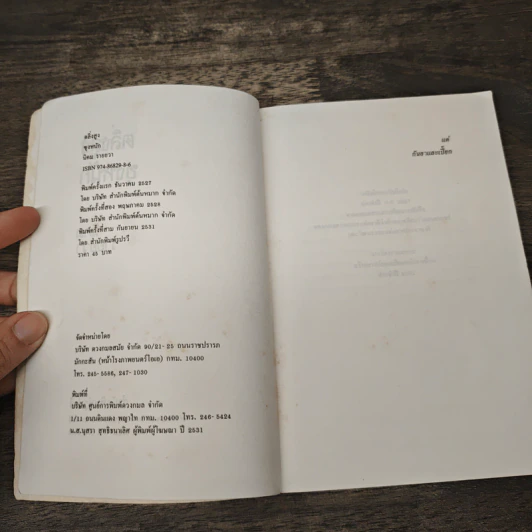 ตลิ่งสูง
ซุงหนัก
นิคม รายยวา
ISBN 974-86829-8-6
พิมพ์ครั้งแรก ธันวาคม 2527
โดย บริษัท สำนักพิมพ์ต้นหมาก จำกัด
พิมพ์ครั้งที่สอง พฤษภาคม 2528
โดย บริษัท สำนักพิมพ์ต้นหมาก จำกัด
พิมพ์ครั้งที่สาม กันยายน 2531
โดย สำนักพิมพ์รูปรวี
ราคา 45 บาท
จัดจำหน่ายโดย
บริษัท ดวงกมลสมัย จำกัด 90/21-25 ถนนราชปรารภ
มักกะสัน (หน้าโรงภาพยนตร์โอเอ) กทม. 10400
โทร. 245-5586, 247-1030
พิมพ์ที่
บริษัท ศูนย์การพิมพ์ดวงกมล จำกัด
1/11 ถนนดินแดง พญาไท กทม. 10400 โทร. 246-5424
น.ส.นุสรา สุทธิธนาเลิศ ผู้พิมพ์ผู้โฆษณา ปี 2531
แด่
กันยามสารปี๊ยก